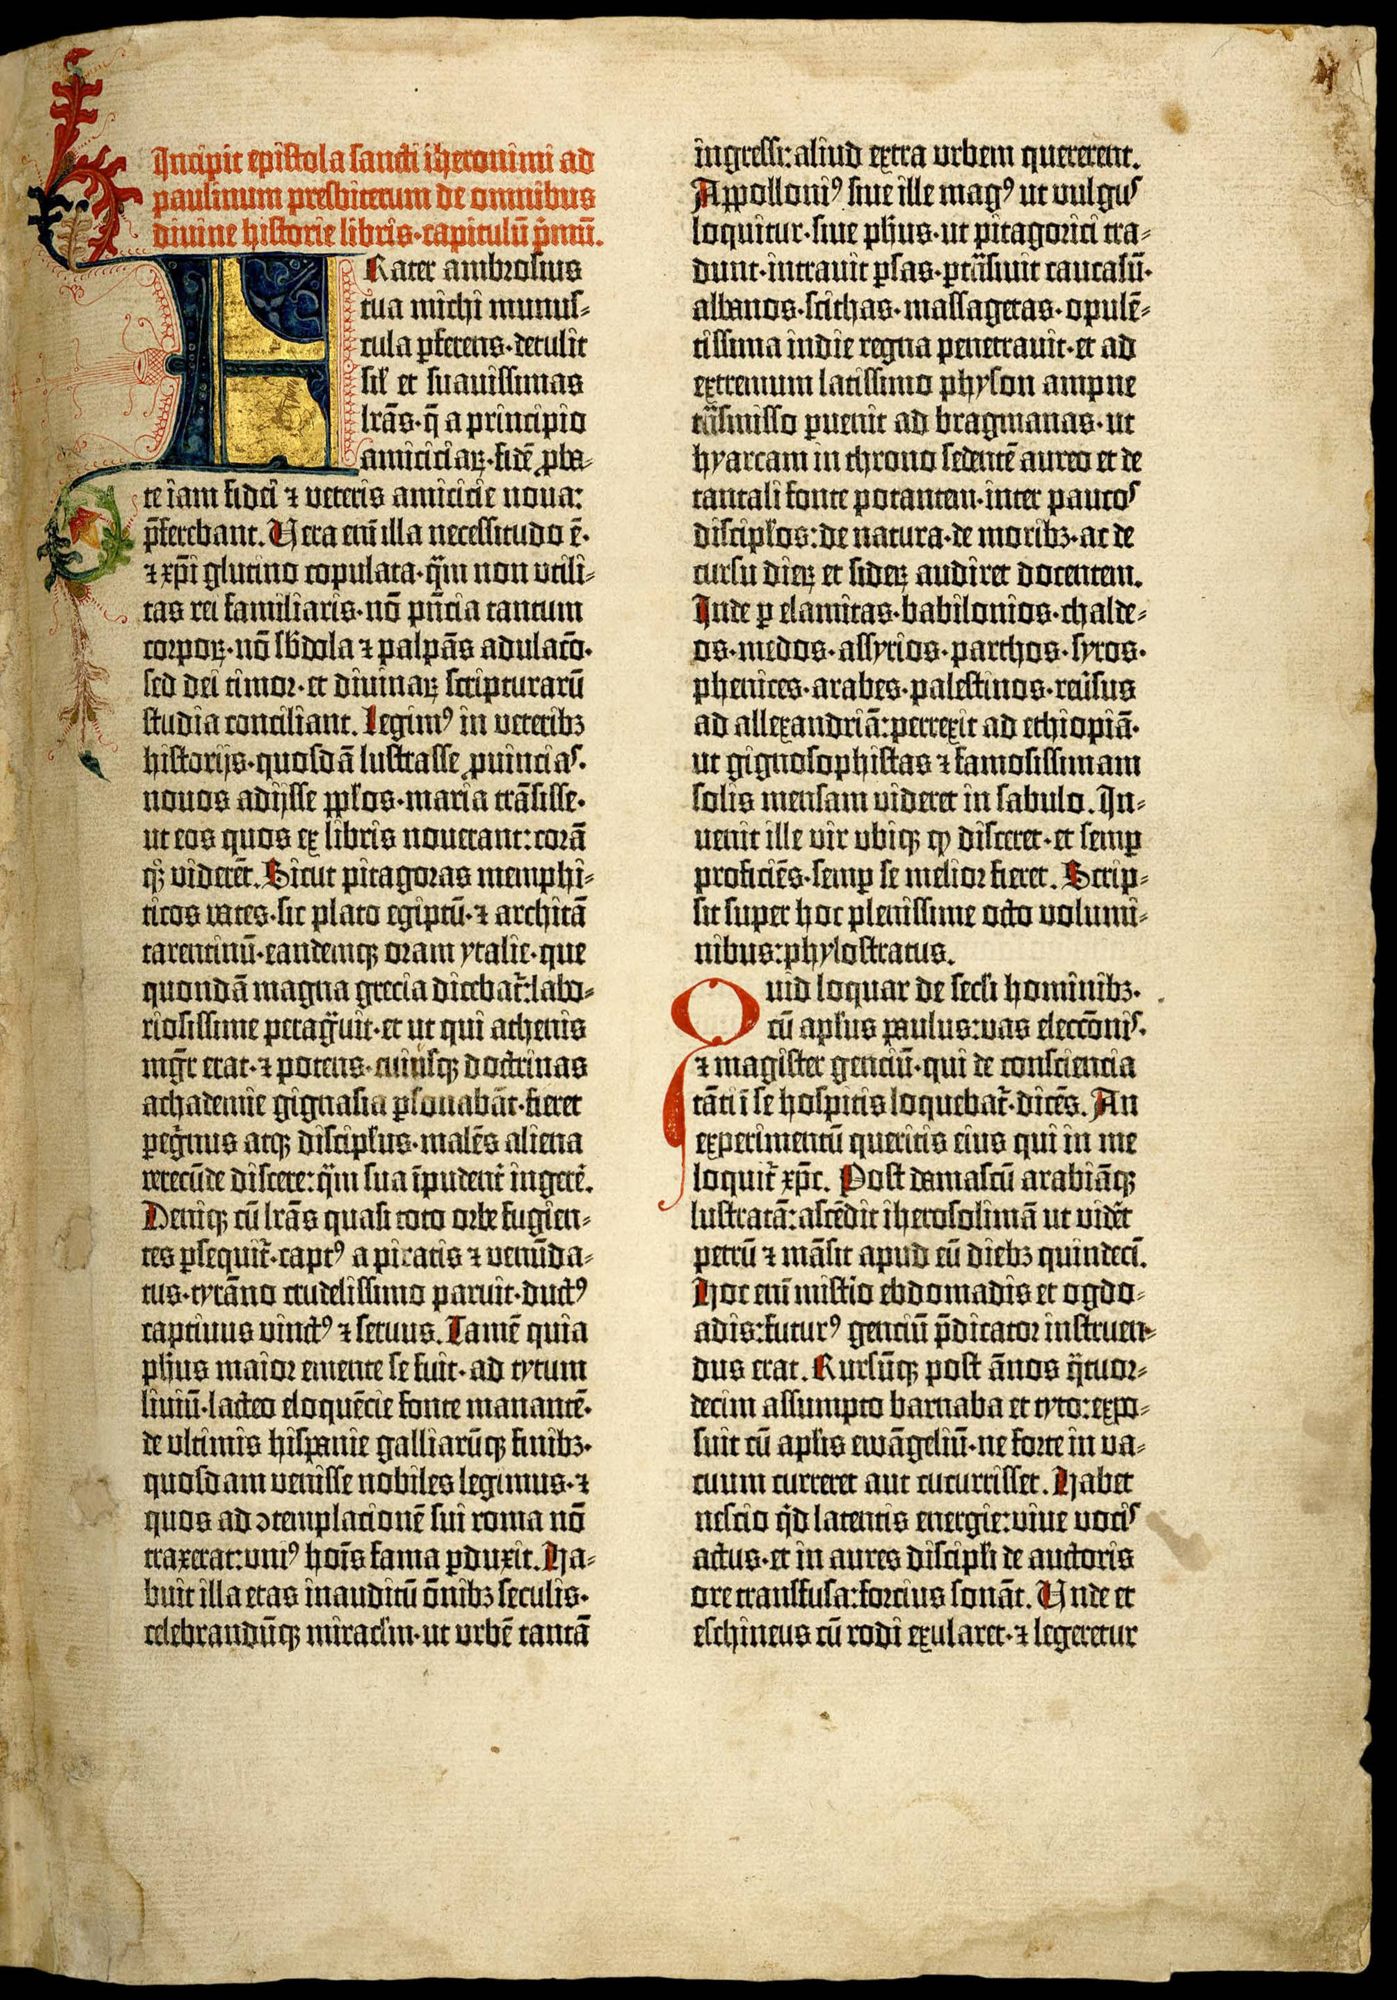 Incipit epistola sancti iheronimi ad
paulinum presbiterum de omnibus
divine historie libris·capitulū p̄mū.
Frater ambrosius
tua michi munus-
cula ꝑferens·detulit
sił et suavissimas
lrās·q̄ a principio
amiciciaꝝ·fidē ꝓba-
te iam fidei ⁊ veteris amicicie nova:
p̄ferebant. Vera enī illa necessitudo ē·
⁊ xp̄i glutino copulata·q̄m non utili-
tas rei familiaris·nō pn̄cia tantum
corpoꝝ·nō sb̄dola ⁊ palpās adulacō·
sed dei timor·et divinaꝝ scripturarū
studia conciliant. Legimꝰ in veteribꝫ
historijs·quosdā lustrasse ꝓvincias·
novos adijsse ꝓplos·maria trāsisse·
ut eos quos ex libris noverant:corā
qꝫ viderēt. Sicut pitagoras memphi-
ticos vates·sic plato egiptū·⁊ architā
tarentinū·eandemqꝫ oram ytalie·que
quondā magna grecia dicebat̄:labo-
riosissime peragͣvit·et ut qui athenis
mgr̄ erat·⁊ potens·cuiusqꝫ doctrinas
achademie gignasia ꝑsonabāt·fieret
ꝑegͥnus atqꝫ discipłus·malēs aliena
verecūde discere:q̄m sua īpudent̄ ingerē.
Deniqꝫ cū lrās quasi toto orbe fugien-
tes ꝑsequit̄·captꝰ a piratis ⁊ venūda-
tus·tyrāno crudelissimo paruit·ductꝰ
captivus vinctꝰ ⁊ servus. Tamē quia
ph̄us maior emente se fuit·ad tytum
liviū·lacteo eloquēcie fonte manantē·
de ultimis hispanie galliarūqꝫ finibꝫ·
quosdam venisse nobiles legimus·⁊
quos ad ↄtemplacionē sui roma nō
traxerat:uniꝰ hoīs fama ꝑduxit. Ha-
buit illa etas inauditū ōnibꝫ seculis·
celebrandūqꝫ miracłm·ut urbē tantā
ingressi:aliud extra urbem quererent.
Appolloniꝰ sive ille magꝰ ut vulgus
loquitur·sive ph̄us·ut pitagorici tra-
dunt·intravit ꝑsas·ꝑtͣsivit caucasū·
albanos·scithas·massagetas·opulē-
tissima indie regna penetravit·et ad
extremum latissimo physon ampne
tͣsmisso ꝑvenit ad bragmanas·ut
hyarcam in throno sedentē aureo et de
tantali fonte potantem·inter paucos
discipłos:de natura·de moribꝫ·ac de
cursu dieꝝ et sideꝝ audiret docentem.
Inde ꝑ elamitas·babilonios·chalde-
os·medos·assyrios·parthos·syros·
phenices·arabes·palestinos·revsus
ad allexandriā:perrexit ad ethiopiā·
ut gignosophistas ⁊ famosissimam
solis mensam videret in sabulo. In-
venit ille vir ubiqꝫ qͦ disceret·et semꝑ
proficiēs·semꝑ se melior fieret. Scrip-
sit super hoc plenissime octo volumi-
nibus:phylostratus.
Quid loquar de secłi hominibꝫ·
cū apłus paulus:vas eleccōnis·
⁊ magister genciū·qui de consciencia
tāti ī se hospitis loquebat̄·dicēs. An
experimentū queritis eius qui in me
loquit̄ xp̄c. Post damascū arabiāqꝫ
lustratā:ascēdit iherosolimā ut vidēt
petrū ⁊ māsit apud eū diebꝫ quindecī.
Hoc enī mistīo ebdomadis et ogdo-
adis:futurꝰ genciū p̄dicator instruen-
dus erat. Rursūqꝫ post ānos qͣtuor-
decim assumpto barnaba et tyto:expo-
suit cū apłis ewāgeliū·ne forte in va-
cuum curreret aut cucurrisset. Habet
nescio qͥd latentis energie:vive vocis
actus·et in aures discipłi de auctoris
ore transfusa:forcius sonāt. Unde et
eschineus cū rodi exularet·⁊ legeretur